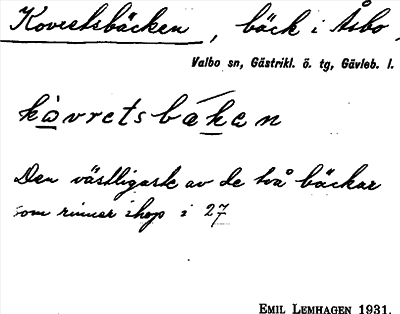 Kovretsbäcken, bäck i Åsbo,
Valbo sn, Gästrikl. ö. tg, Gävleb. l.
kòvretsbäken
Den västligaste av de två bäckar
som rinner ihop i 27
EMIL LEMHAGEN 1931.